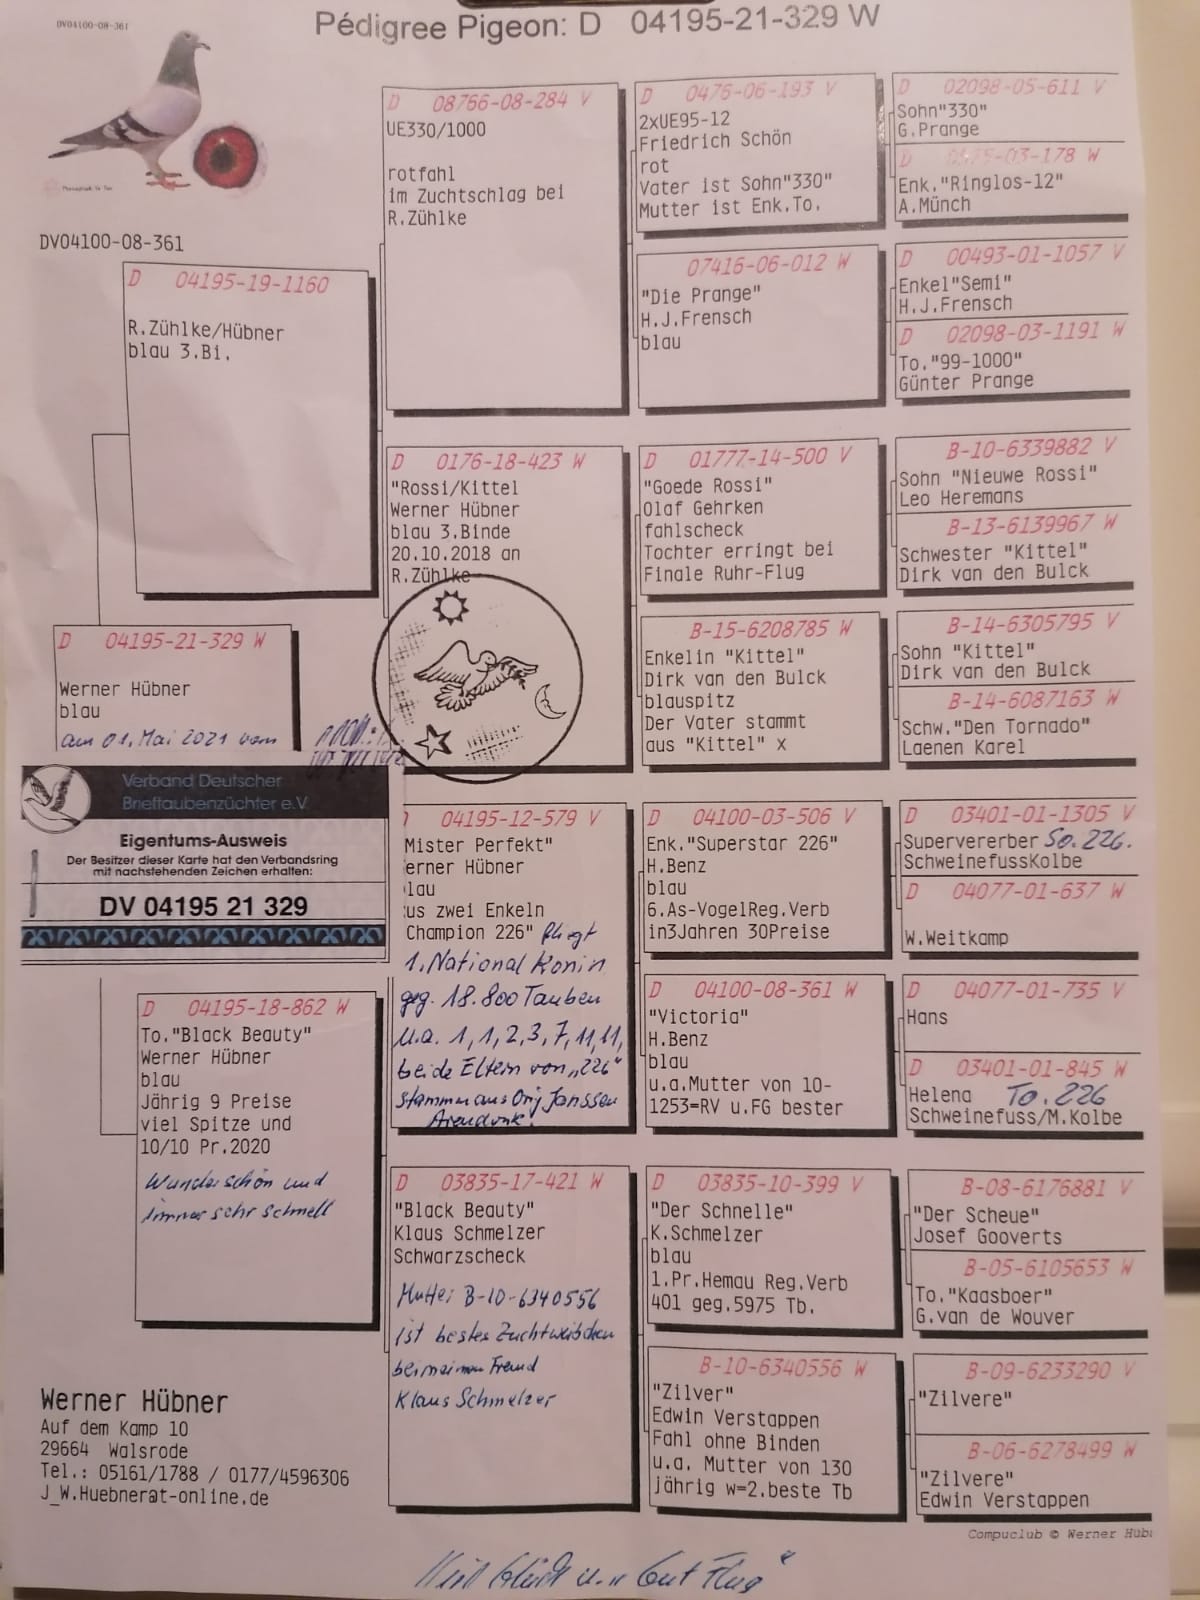 DV04100-08-361
Pédigree Pigeon: D 04195-21-329 W
DV04100-08-361
D 04195-19-1160
R.Zühlke/Hübner
blau 3.Bi.
D 04195-21-329 W
Werner Hübner
blau
am 01. Mai 2021 vom
Verband Deutscher
Brieftaubenzüchter e.V.
Eigentums-Ausweis
Der Besitzer dieser Karte hat den Verbandsring
mit nachstehenden Zeichen erhalten:
DV 04195 21 329
D 04195-18-862 W
To."Black Beauty"
Werner Hübner
blau
Jährig 9 Preise
viel Spitze und
10/10 Pr.2020
Wunderschön und
immer sehr schnell
D 08766-08-284 V
UE330/1000
rotfahl
im Zuchtschlag bei
R.Zühlke
D 0176-18-423 W
"Rossi/Kittel
Werner Hübner
blau 3.Binde
20.10.2018 an
R.Zühlke
04195-12-579 V
Mister Perfekt"
erner Hübner
lau
us zwei Enkeln
Champion 226" fliegt
1. National Konin
geg. 18.800 Tauben
u.a. 1, 1, 2, 3, 7, 11, 11,
beide Eltern von „226"
stammen aus Orig Janssen
Arendonk.
D 03835-17-421 W
"Black Beauty"
Klaus Schmelzer
Schwarzscheck
Mutter B-10-6340556
ist bestes Zuchtweibchen
bei meinem Freund
Klaus Schmelzer
D 0476-06-193 V
2xUE95-12
Friedrich Schön
rot
Vater ist Sohn"330"
Mutter ist Enk.To.
07416-06-012 W
"Die Prange"
H.J.Frensch
blau
D 01777-14-500 V
"Goede Rossi"
Olaf Gehrken
fahlscheck
Tochter erringt bei
Finale Ruhr-Flug
B-15-6208785 W
Enkelin "Kittel"
Dirk van den Bulck
blauspitz
Der Vater stammt
aus "Kittel" x
D 04100-03-506 V
Enk."Superstar 226"
H.Benz
blau
6.As-VogelReg.Verb
in3Jahren 30Preise
D 04100-08-361 W
"Victoria"
H.Benz
blau
u.a.Mutter von 10-
1253=RV u.FG bester
D 03835-10-399 V
"Der Schnelle"
K.Schmelzer
blau
1.Pr.Hemau Reg.Verb
401 geg.5975 Tb.
B-10-6340556 W
"Zilver"
Edwin Verstappen
Fahl ohne Binden
u.a. Mutter von 130
jährig w=2.beste Tb
D 02098-05-611 V
Sohn"330"
G.Prange
D -03-178 W
Enk."Ringlos-12"
A.Münch
D 00493-01-1057 V
Enkel"Semi"
H.J.Frensch
D 02098-03-1191 W
To."99-1000"
Günter Prange
B-10-6339882 V
Sohn "Nieuwe Rossi"
Leo Heremans
B-13-6139967 W
Schwester "Kittel"
Dirk van den Bulck
B-14-6305795 V
Sohn "Kittel"
Dirk van den Bulck
B-14-6087163 W
Schw."Den Tornado"
Laenen Karel
D 03401-01-1305 V
Supervererber So. 226.
SchweinefussKolbe
D 04077-01-637 W
W.Weitkamp
D 04077-01-735 V
Hans
D 03401-01-845 W
Helena To. 226
Schweinefuss/M.Kolbe
B-08-6176881 V
"Der Scheue"
Josef Gooverts
B-05-6105653 W
To."Kaasboer"
G.van de Wouver
B-09-6233290 V
"Zilvere"
B-06-6278499 W
"Zilvere"
Edwin Verstappen
Werner Hübner
Auf dem Kamp 10
29664 Walsrode
Tel.: 05161/1788 / 0177/4596306
J_W.Huebnerat-online.de
Compuclub © Werner Hüb
Viel Glück u. „Gut Flug"